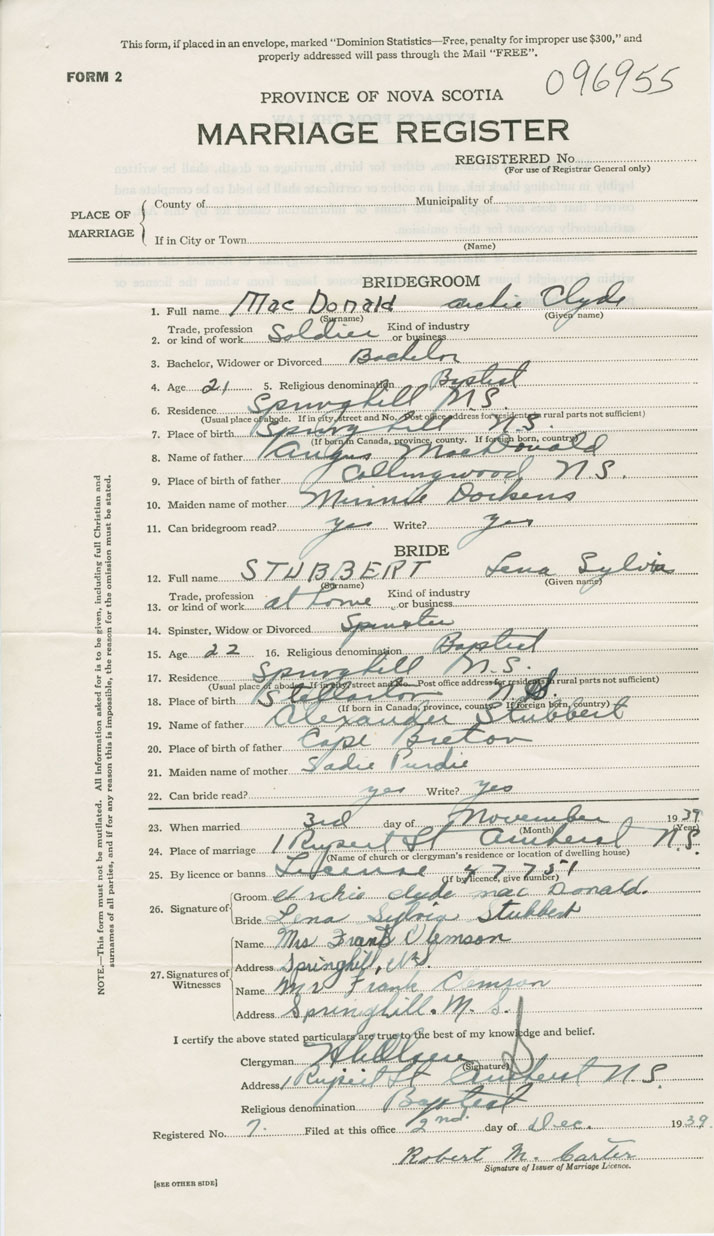 This form, if placed in an envelope, marked "Dominion Statistics—Free, penalty for improper use $300," and
properly addressed will pass through the Mail "FREE".
FORM 2
096955
PROVINCE OF NOVA SCOTIA
MARRIAGE REGISTER
REGISTERED No.
(For use of Registrar General only)
PLACE OF MARRIAGE
County of Municipality of
If in City or Town
(Name)
BRIDEGROOM
1. Full name Mac Donald Archie Clyde
(Surname) (Given name)
2. Trade, profession or kind of work Soldier Kind of industry or business
3. Bachelor, Widower or Divorced Bachelor
4. Age 21 5. Religious denomination Baptist
6. Residence Springhill N.S.
(Usual place of abode. If in city, street and No. Post office address for residents in rural parts not sufficient)
7. Place of birth Springhill N.S.
(If born in Canada, province, county. If foreign born, country)
8. Name of father Angus MacDonald
9. Place of birth of father Collingwood N.S.
10. Maiden name of mother Minnie Dorkens
11. Can bridegroom read? yes Write? yes
BRIDE
12. Full name STUBBERT Lena Sylvia
(Surname) (Given name)
13. Trade, profession or kind of work at home Kind of industry or business
14. Spinster, Widow or Divorced Spinster
15. Age 22 16. Religious denomination Baptist
17. Residence Springhill N.S.
(Usual place of abode. If in city, street and No. Post office address for residents in rural parts not sufficient)
18. Place of birth Stellarton N.S.
(If born in Canada, province, county. If foreign born, country)
19. Name of father Alexander Stubbert
20. Place of birth of father Cape Breton
21. Maiden name of mother Sadie Purdie
22. Can bride read? yes Write? yes
23. When married 3rd day of November 1939
(Month) (Year)
24. Place of marriage 1 Rupert St Amherst N.S.
(Name of church or clergyman's residence or location of dwelling house)
25. By licence or banns License 47751
(If by licence, give number)
26. Signature of
Groom Archie clyde mac Donald.
Bride Lena Sylvia Stubbert
27. Signatures of Witnesses
Name Mrs Frank Clemson
Address Springhill, N.S.
Name Mr Frank Clemson
Address Springhill. N. S.
I certify the above stated particulars are true to the best of my knowledge and belief.
Clergyman
(Signature)
Address 1 Rupert St Amherst N.S.
Religious denomination Baptist
Registered No. 7. Filed at this office 2nd day of Dec. 1939.
Robert M. Carter
Signature of Issuer of Marriage Licence.
[SEE OTHER SIDE]
NOTE.—This form must not be mutilated. All information asked for is to be given, including full Christian and
surnames of all parties, and if for any reason this is impossible, the reason for the omission must be stated.